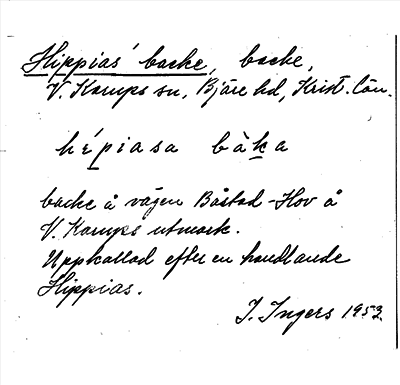 Hippias' backe, backe,
V. Karups sn, Bjäre hd, Krist. län.
hépiasa bàka
backe å vägen Båstad-Hov å
V. Karups utmark.
Uppkallad efter en handlande
Hippias.
I. Ingers 1953.